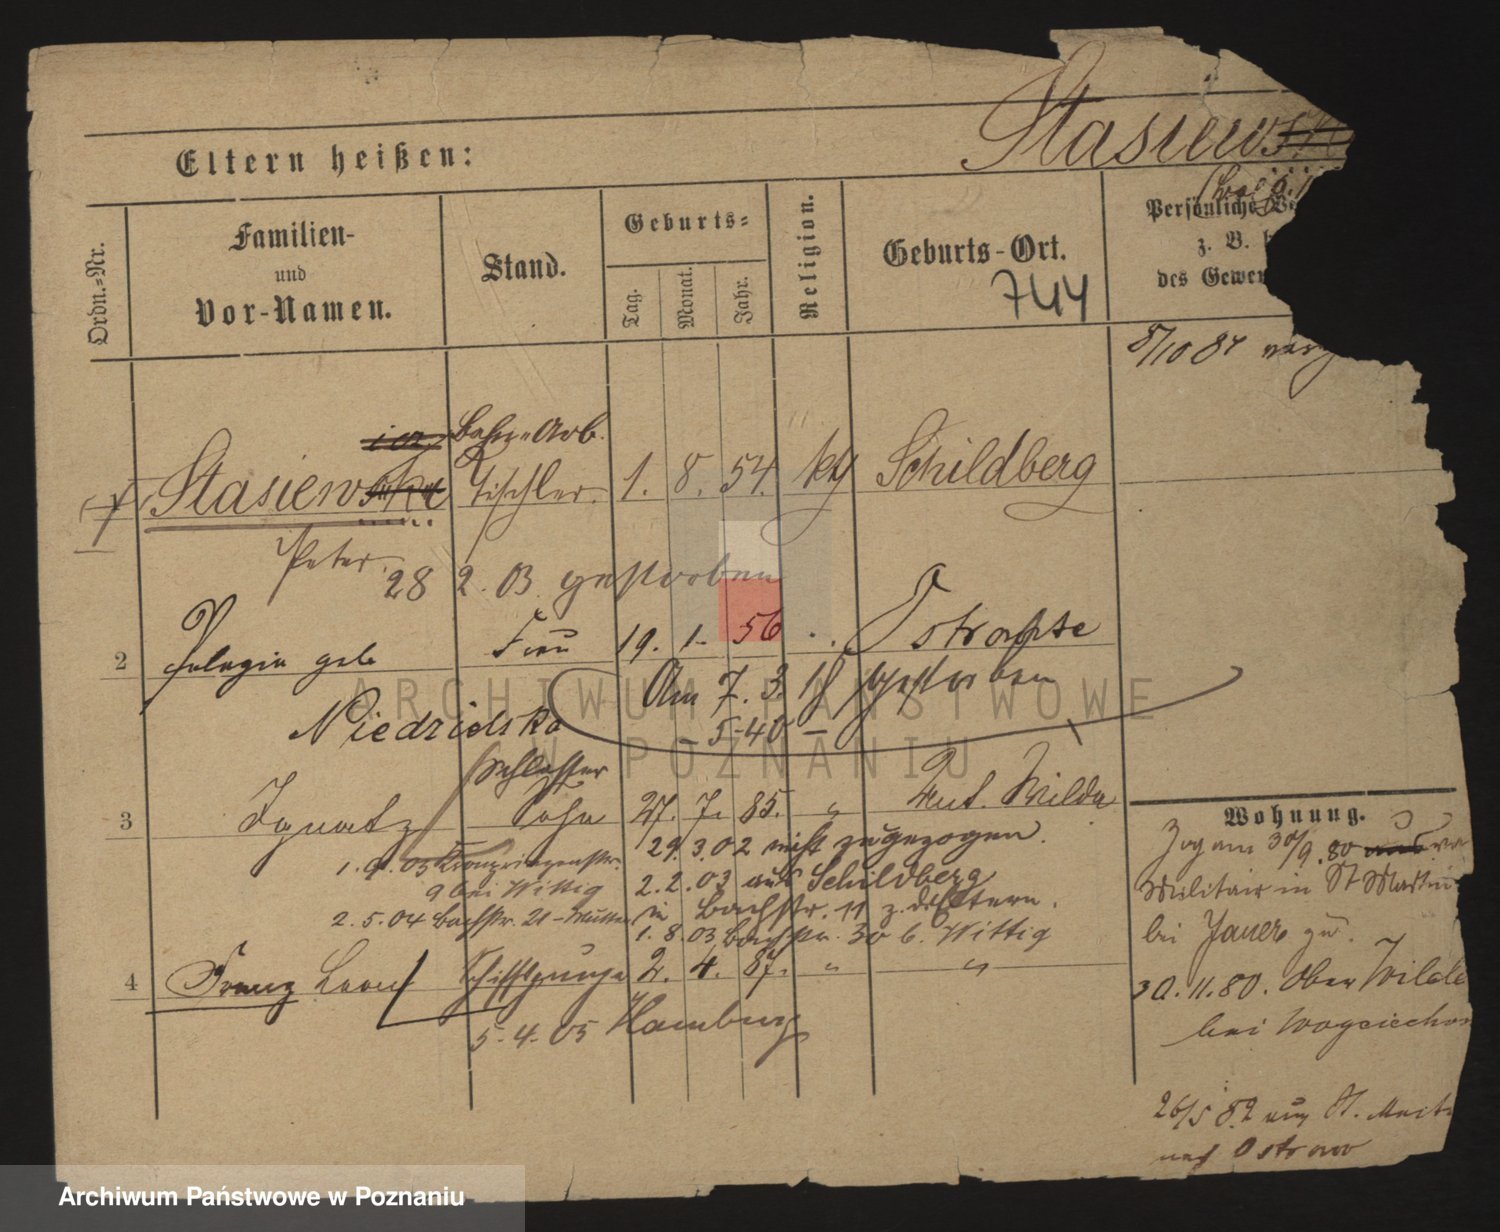 Stasiewski
Eltern heißen:
Ordn.-Nr.
Familien-
und
Vor-Namen.
Stand.
Geburts-
Tag.
Monat.
Jahr.
Religion.
Geburts-Ort.
744
Persönliche
z. B.
des Gewer
8/10 84
Bahn-Arb.
1 Stasiewski Tischler. 1. 8. 54. kth Schildberg
Peter.
28 2. 03. gestorben
2 Pelagia geb Frau 19. 1. 56
Am 7. 3. 18 gestorben
Niedzielska
- 5-40 -
Schlosser
3 Ignatz Sohn 27. 7. 85. " Unt. Wilda
29. 3. 02 nicht zugezogen.
1. 9. 03
9 bei Wittig
2. 2. 03 aus Schildberg
in Bachstr. 11 z. d. Eltern.
2. 5. 04 Bachstr. 21 - Mutter
1. 8. 03 Bachstr. 30 b. Wittig
4 Franz Leon Schiffsjunge 2. 4. 87. " "
5. 4. 05 Hamburg
Wohnung.
Zog am 30/9. 80 aus
Militair in St Martin
bei Jauer zu.
30. 11. 80. Ober Wilda
bei
26/5 82 aus St. Mart
nach Ostrowo
ARCHIWUM PAŃSTWOWE
W POZNANIU
Archiwum Państwowe w Poznaniu